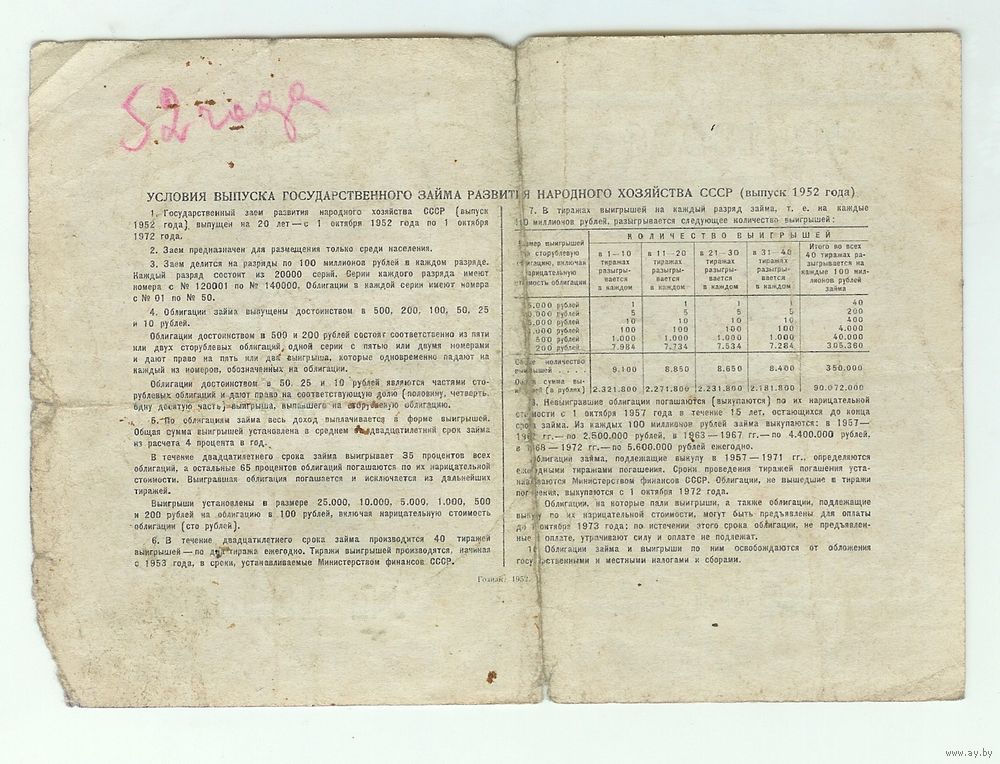 52 года
УСЛОВИЯ ВЫПУСКА ГОСУДАРСТВЕННОГО ЗАЙМА РАЗВИТИЯ НАРОДНОГО ХОЗЯЙСТВА СССР (выпуск 1952 года)
1. Государственный заем развития народного хозяйства СССР (выпуск
1952 года) выпущен на 20 лет — с 1 октября 1952 года по 1 октября
1972 года.
2. Заем предназначен для размещения только среди населения.
3. Заем делится на разряды по 100 миллионов рублей в каждом разряде.
Каждый разряд состоит из 20000 серий. Серии каждого разряда имеют
номера с № 120001 по № 140000. Облигации в каждой серии имеют номера
с № 01 по № 50.
4. Облигации займа выпущены достоинством в 500, 200, 100, 50, 25
и 10 рублей.
Облигации достоинством в 500 и 200 рублей состоят соответственно из пяти
или двух сторублевых облигаций одной серии с пятью или двумя номерами
и дают право на пять или два выигрыша, которые одновременно падают на
каждый из номеров, обозначенных на облигации.
Облигации достоинством в 50, 25 и 10 рублей являются частями сто-
рублевых облигаций и дают право на соответствующую долю (половину, четверть,
одну десятую часть) выигрыша, выпавшего на сторублевую облигацию.
5. По облигациям займа весь доход выплачивается в форме выигрышей.
Общая сумма выигрышей установлена в среднем за двадцатилетний срок займа
из расчета 4 процента в год.
В течение двадцатилетнего срока займа выигрывает 35 процентов всех
облигаций, а остальные 65 процентов облигаций погашаются по их нарицательной
стоимости. Выигравшая облигация погашается и исключается из дальнейших
тиражей.
Выигрыши установлены в размере 25.000, 10.000, 5.000, 1.000, 500
и 200 рублей на облигацию в 100 рублей, включая нарицательную стоимость
облигации (сто рублей).
6. В течение двадцатилетнего срока займа производится 40 тиражей
выигрышей — по два тиража ежегодно. Тиражи выигрышей производятся, начиная
с 1953 года, в сроки, устанавливаемые Министерством финансов СССР.
7. В тиражах выигрышей на каждый разряд займа, т. е. на каждые
100 миллионов рублей, разыгрывается следующее количество выигрышей:
Размер выигрышей на сторублевую облигацию, включая нарицательную стоимость облигации
КОЛИЧЕСТВО ВЫИГРЫШЕЙ
в 1—10 тиражах разыгрывается в каждом
в 11—20 тиражах разыгрывается в каждом
в 21—30 тиражах разыгрывается в каждом
в 31—40 тиражах разыгрывается в каждом
Итого во всех 40 тиражах разыгрывается на каждые 100 миллионов рублей займа
25.000 рублей 1 1 1 1 40
10.000 рублей 5 5 5 5 200
5.000 рублей 10 10 10 10 400
1.000 рублей 100 100 100 100 4.000
500 рублей 1.000 1.000 1.000 1.000 40.000
200 рублей 7.984 7.734 7.534 7.284 305.360
Общее количество выигрышей . . . . . 9.100 8.850 8.650 8.400 350.000
Общая сумма выигрышей (в рублях) 2.321.800 2.271.800 2.231.800 2.181.800 90.072.000
8. Невыигравшие облигации погашаются (выкупаются) по их нарицательной
стоимости с 1 октября 1957 года в течение 15 лет, остающихся до конца
срока займа. Из каждых 100 миллионов рублей займа выкупаются: в 1957—
1962 гг.— по 2.500.000 рублей, в 1963—1967 гг.— по 4.400.000 рублей,
в 1968—1972 гг.— по 5.600.000 рублей ежегодно.
Облигации займа, подлежащие выкупу в 1957—1971 гг., определяются
ежегодными тиражами погашения. Сроки проведения тиражей погашения уста-
навливаются Министерством финансов СССР. Облигации, не вышедшие в тиражи
погашения, выкупаются с 1 октября 1972 года.
Облигации, на которые пали выигрыши, а также облигации, подлежащие
выкупу по их нарицательной стоимости, могут быть предъявлены для оплаты
до 1 октября 1973 года; по истечении этого срока облигации, не предъявлен-
ные к оплате, утрачивают силу и оплате не подлежат.
Облигации займа и выигрыши по ним освобождаются от обложения
государственными и местными налогами и сборами.
Гознак. 1952.
www.ay.by